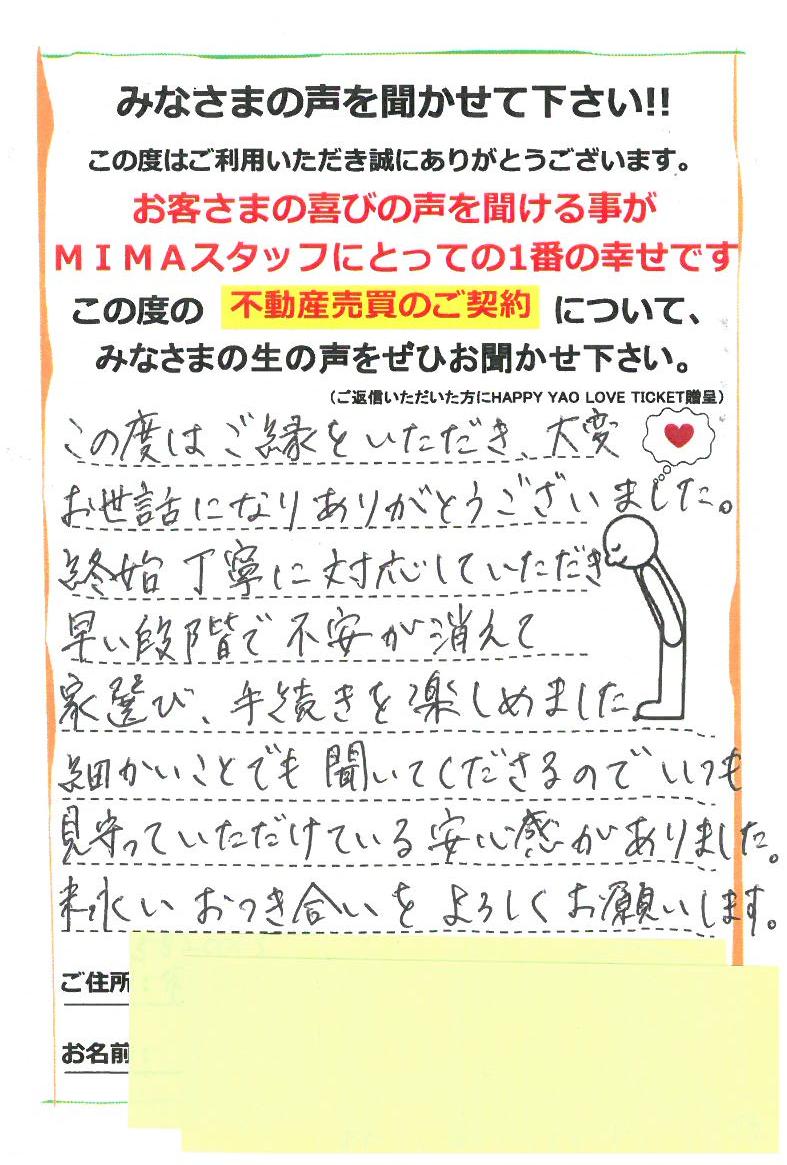 みなさまの声を聞かせて下さい!!
この度はご利用いただき誠にありがとうございます。
お客さまの喜びの声を聞ける事が
ＭＩＭＡスタッフにとっての1番の幸せです
この度の 不動産売買のご契約 について、
みなさまの生の声をぜひお聞かせ下さい。
（ご返信いただいた方にHAPPY YAO LOVE TICKET贈呈）
この度はご縁をいただき、大変
お世話になりありがとうございました。
終始丁寧に対応していただき
早い段階で不安が消えて
家選び、手続きを楽しめました
細かいことでも聞いてくださるのでいつも
見守っていただけている安心感がありました。
末永いおつき合いをよろしくお願いします。
ご住所
お名前